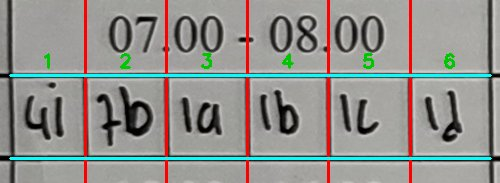 07.00 - 08.00
1 2 3 4 5 6
4i 7b 1a 1b 1c 1d